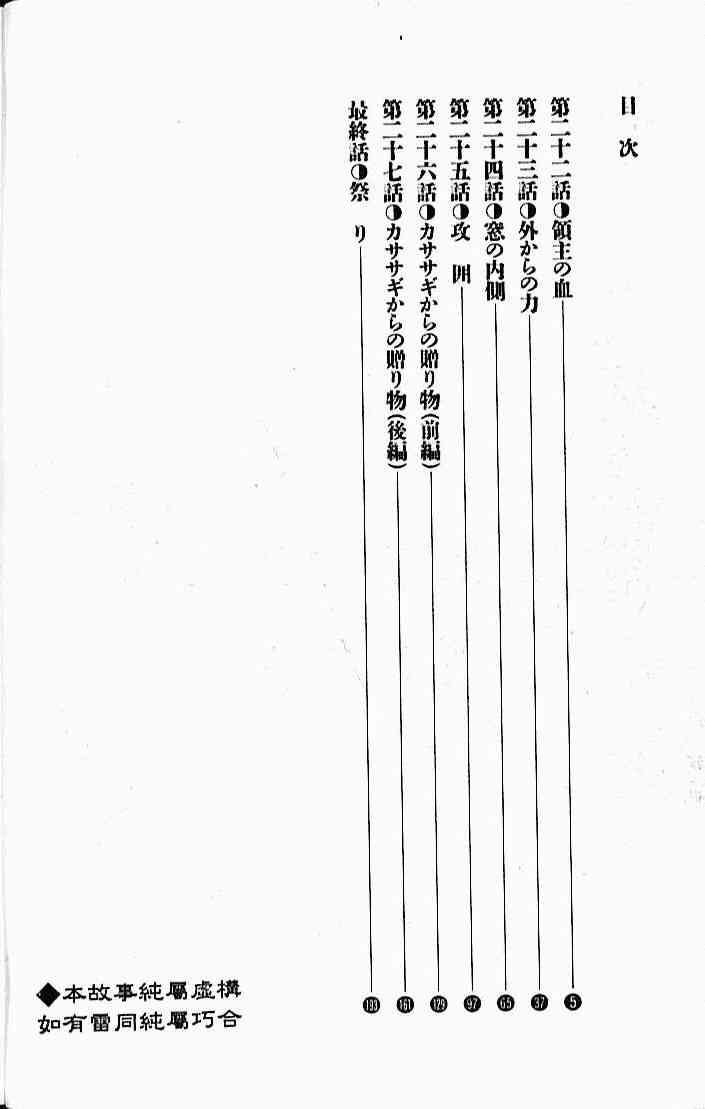 目次
第二十二話◑領主の血 5
第二十三話◑外からの力 37
第二十四話◑窓の内側 65
第二十五話◑攻囲 97
第二十六話◑カササギからの贈り物(前編) 129
第二十七話◑カササギからの贈り物(後編) 161
最終話◑祭り 193
◆本故事純屬虛構
如有雷同純屬巧合